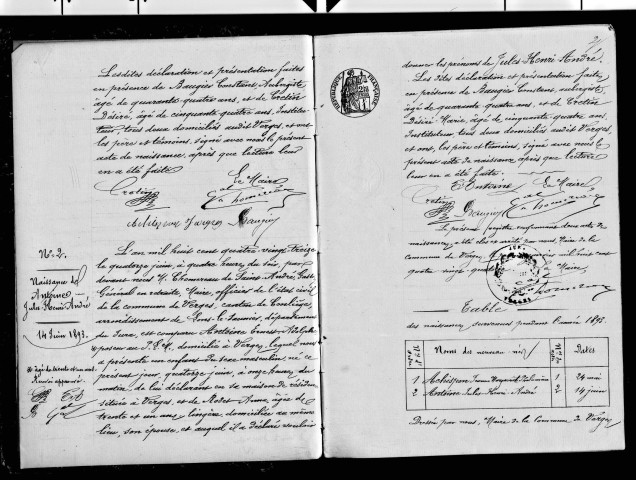 Lesdites déclaration et présentation faites
en présence de Baugier Constant Aubergiste
âgé de quarante quatre ans, et de Cretin
Désiré, âgé de cinquante quatre ans, Institu-
teur, tous deux domiciliés audit Verges, et ont
les père et témoins, signé avec nous le présent
acte de naissance, après que lecture leur
en a été faite
Le Maire
No. 2.
Naissance de
Antoine
Jules Henri André
14 Juin 1893.
L'an mil huit cent quatre vingt treize
le quatorze juin, à quatre heures du soir, par
devant nous
Général en retraite, Maire, officier de l'état civil
de la commune de Verges, canton de Conliège
arrondissement de Lons-le-Saunier, département
du Jura, est comparu Antoine Ernest
domicilié à Verges, lequel nous
a présenté un enfant du sexe masculin né ce
présent jour, quatorze juin, à onze heures du
matin, de lui déclarant en sa maison de
située à Verges, et de Anna, âgée de
trente et un ans, lingère, domiciliée au même
lieu, son épouse, et auquel il a déclaré vouloir
donner les prénoms de Jules Henri André.
Les dites déclaration et présentation faites
en présence de Baugier Constant, aubergiste,
âgé de quarante quatre ans, et de Cretin
Désiré Marie, âgé de cinquante quatre ans.
Instituteur, tous deux domiciliés audit Verges,
et ont, les père et témoins, signé avec nous le
présent acte de naissance après que lecture
leur en a été faite.
E Antoine Le Maire,
Le présent registre contenant deux actes de
naissance, a été clos et arrêté par nous, Maire de la
Commune de Verges
quatre vingt
Le Maire
Table
des naissances survenues pendant l'année 1893.
Noms des nouveaux-nés Dates
1 1 24 mai
2 Antoine Jules Henri André 2 14 juin
Dressée par nous, Maire de la Commune de Verges